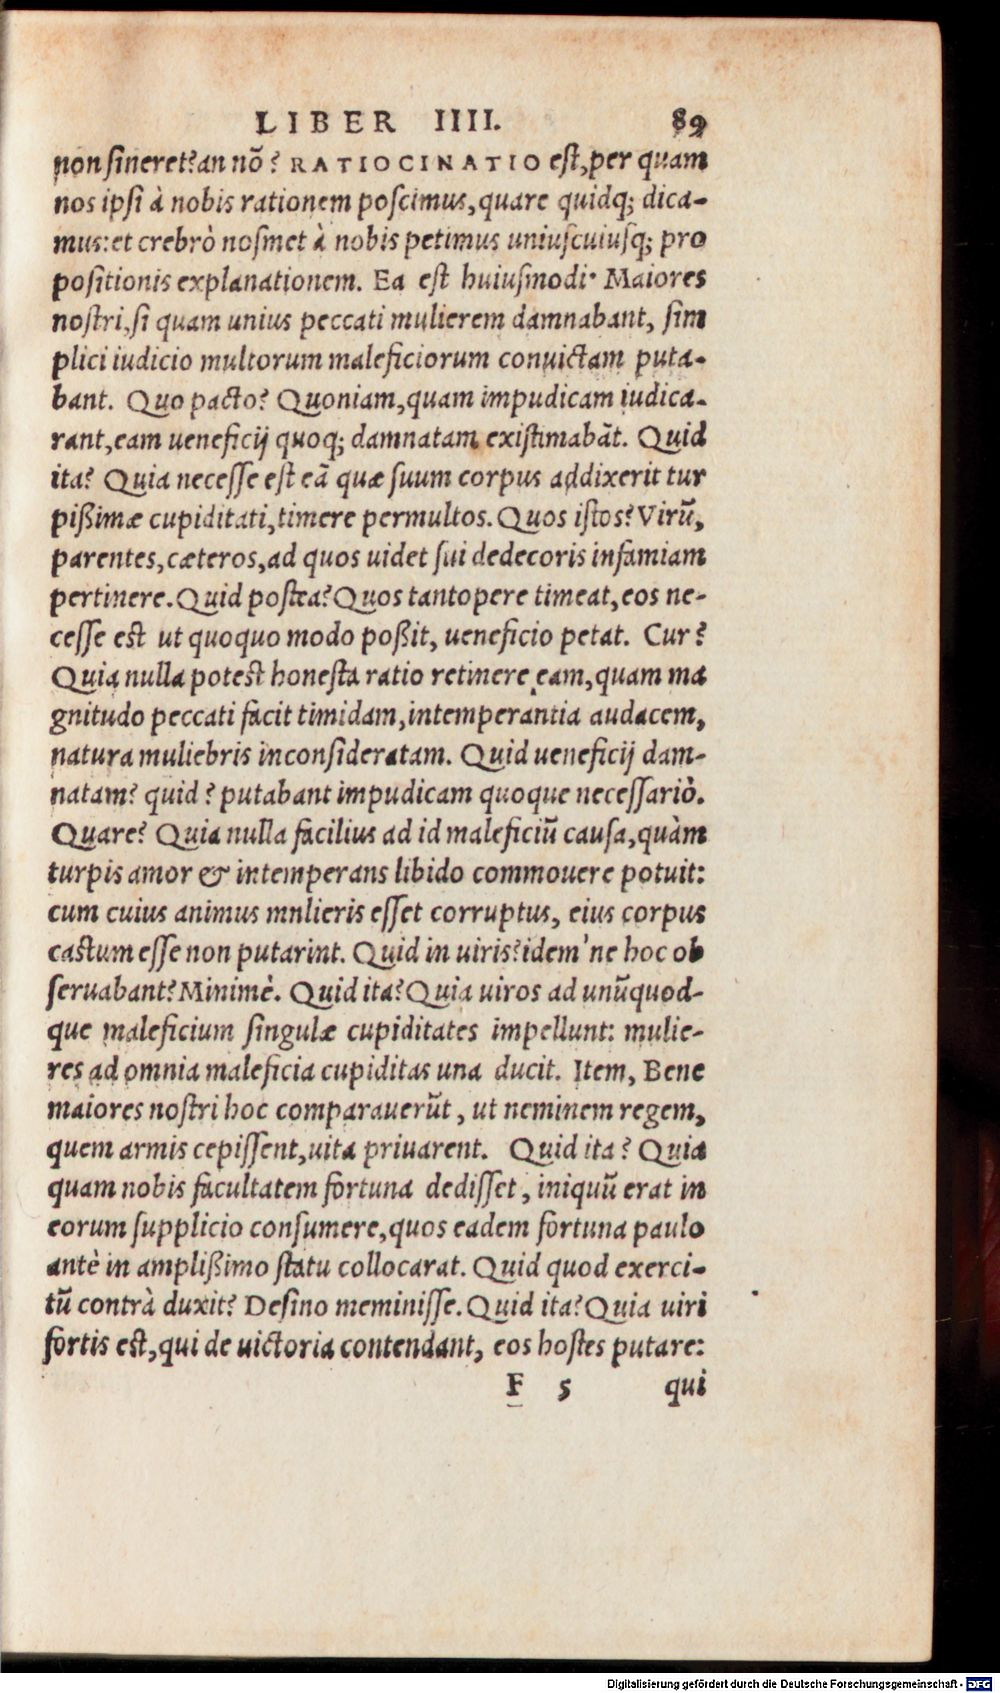 LIBER IIII. 89
non sineret? an nõ? RATIOCINATIO est, per quam
nos ipsi à nobis rationem poscimus, quare quidq; dica-
mus: et crebrò nosmet à nobis petimus uniuscuiusq; pro
positionis explanationem. Ea est huiusmodi· Maiores
nostri, si quam unius peccati mulierem damnabant, sim
plici iudicio multorum maleficiorum convictam puta-
bant. Quo pacto? Quoniam, quam impudicam iudica-
rant, eam ueneficij quoq; damnatam existimabãt. Quid
ita? Quia necesse est eã quæ suum corpus addixerit tur
pißimæ cupiditati, timere permultos. Quos istos? Virũ,
parentes, cæteros, ad quos uidet sui dedecoris infamiam
pertinere. Quid postea? Quos tantopere timeat, eos ne-
cesse est ut quoquo modo poßit, ueneficio petat. Cur?
Quia nulla potest honesta ratio retinere eam, quam ma
gnitudo peccati facit timidam, intemperantia audacem,
natura muliebris inconsideratam. Quid ueneficij dam-
natam? quid? putabant impudicam quoque necessariò.
Quare? Quia nulla facilius ad id maleficiũ causa, quàm
turpis amor & intemperans libido commouere potuit:
cum cuius animus mnlieris esset corruptus, eius corpus
castum esse non putarint. Quid in uiris? idem'ne hoc ob
seruabant? Minimè. Quid ita? Quia uiros ad unũquod-
que maleficium singulæ cupiditates impellunt: mulie-
res ad omnia maleficia cupiditas una ducit. Item, Bene
maiores nostri hoc comparauerũt, ut neminem regem,
quem armis cepissent, uita priuarent. Quid ita? Quia
quam nobis facultatem fortuna dedisset, iniquũ erat in
eorum supplicio consumere, quos eadem fortuna paulo
antè in amplißimo statu collocarat. Quid quod exerci-
tũ contrà duxit? Desino meminisse. Quid ita? Quia uiri
fortis est, qui de uictoria contendant, eos hostes putare:
F 5 qui
Digitalisierung gefördert durch die Deutsche Forschungsgemeinschaft - DFG